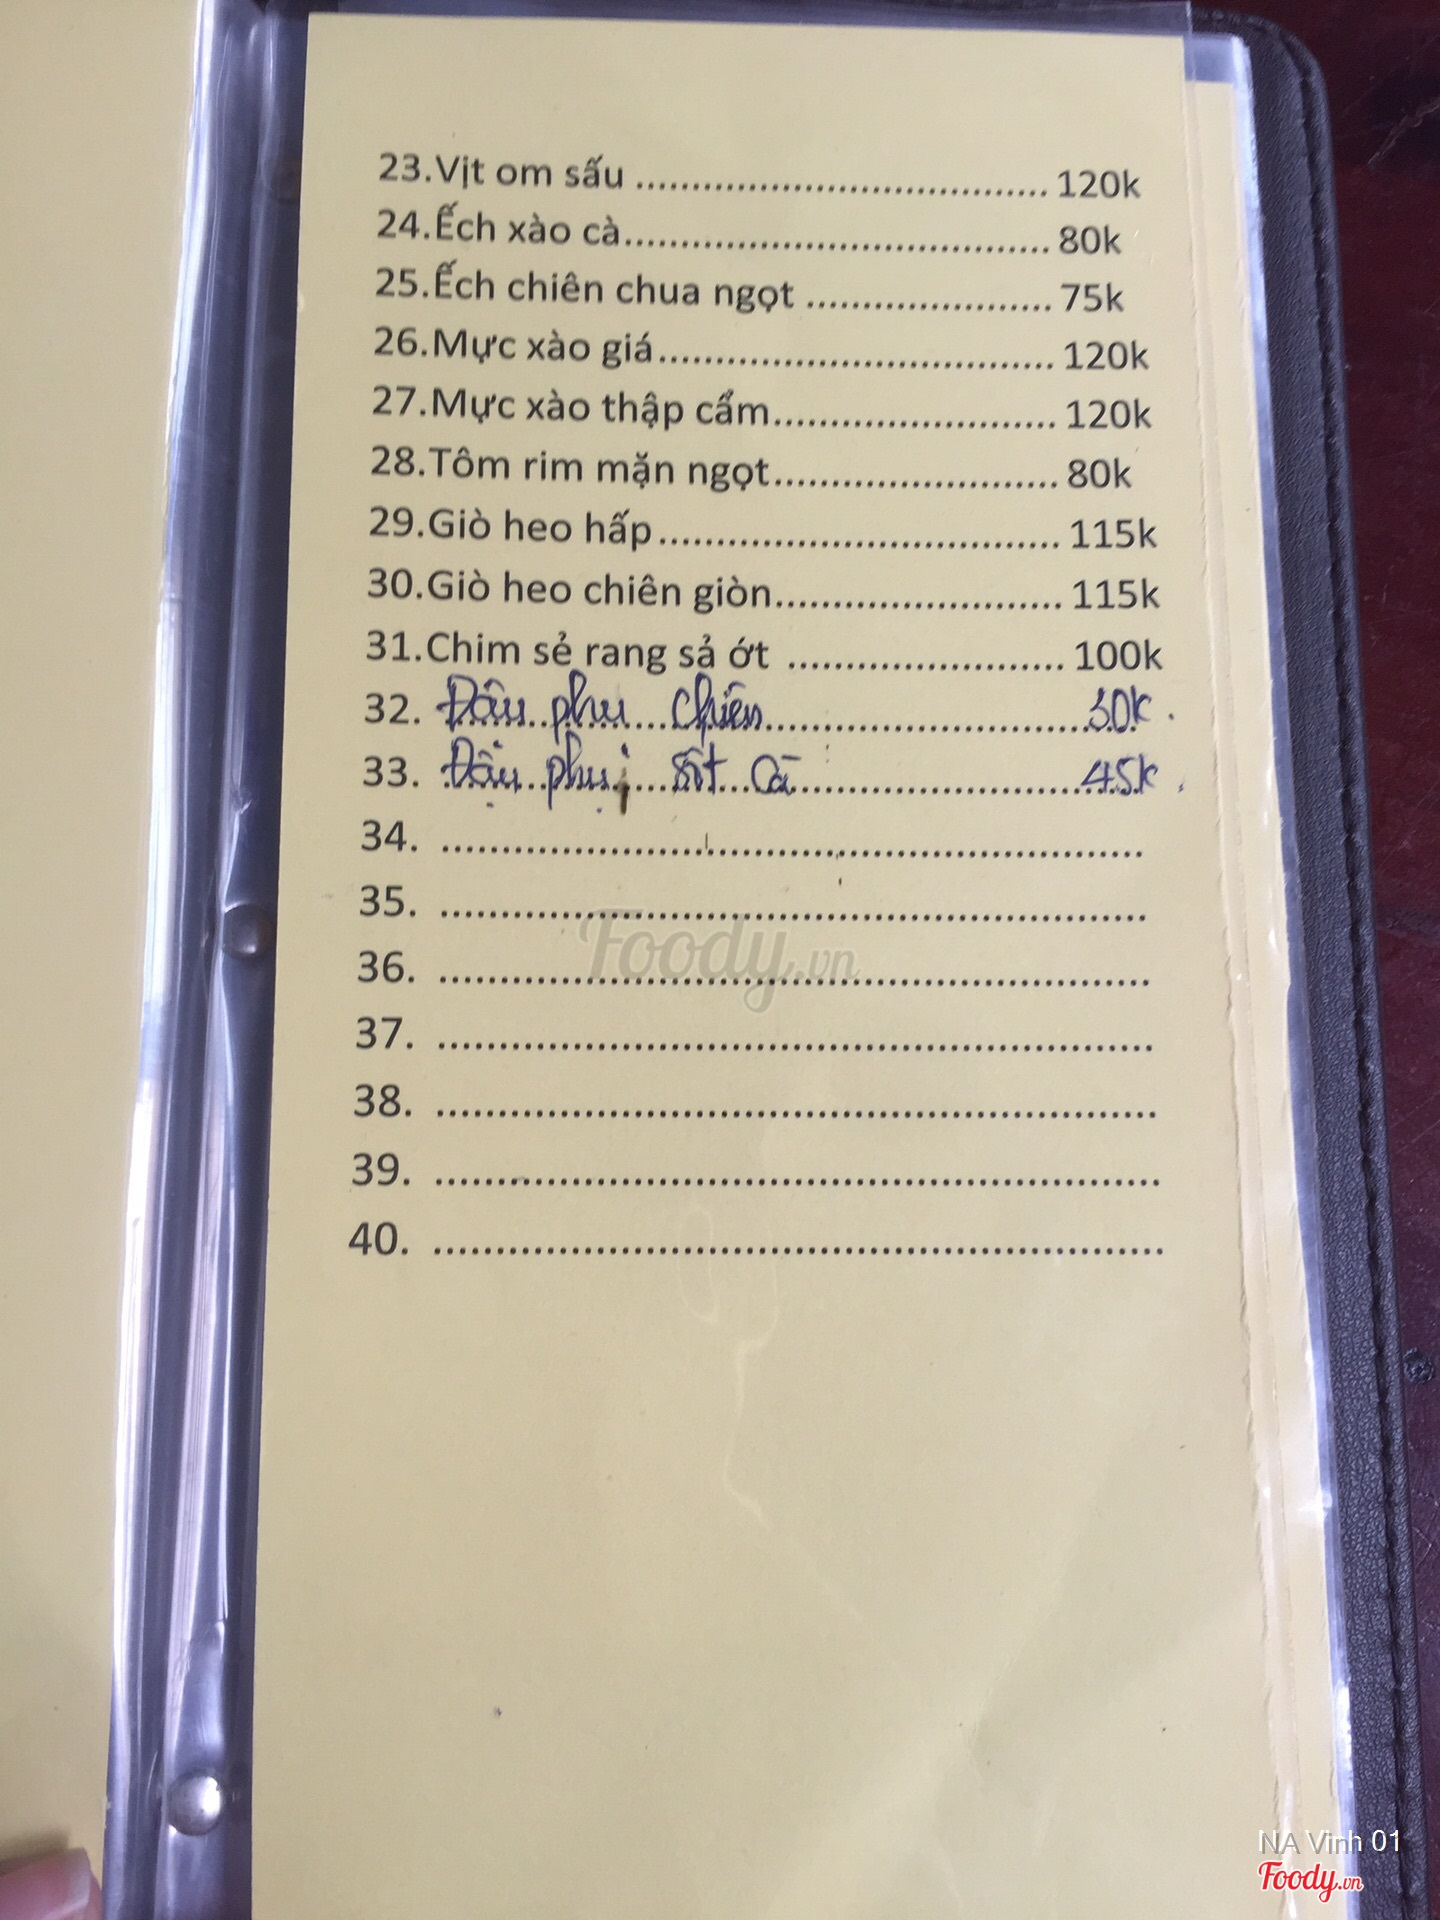 23.Vịt om sấu ..................................... 120k
24.Ếch xào cà...................................... 80k
25.Ếch chiên chua ngọt ...................... 75k
26.Mực xào giá................................... 120k
27.Mực xào thập cẩm......................... 120k
28.Tôm rim mặn ngọt......................... 80k
29.Giò heo hấp.................................... 115k
30.Giò heo chiên giòn.......................... 115k
31.Chim sẻ rang sả ớt ......................... 100k
32. Đâu phu chiên 30k.
33. Đậu phụ sốt cà 45k.
34. ..............................................................
35. ..............................................................
36. ..............................................................
37. ..............................................................
38. ..............................................................
39. ..............................................................
40. ..............................................................
Foody.vn
NA Vinh 01
Foody.vn